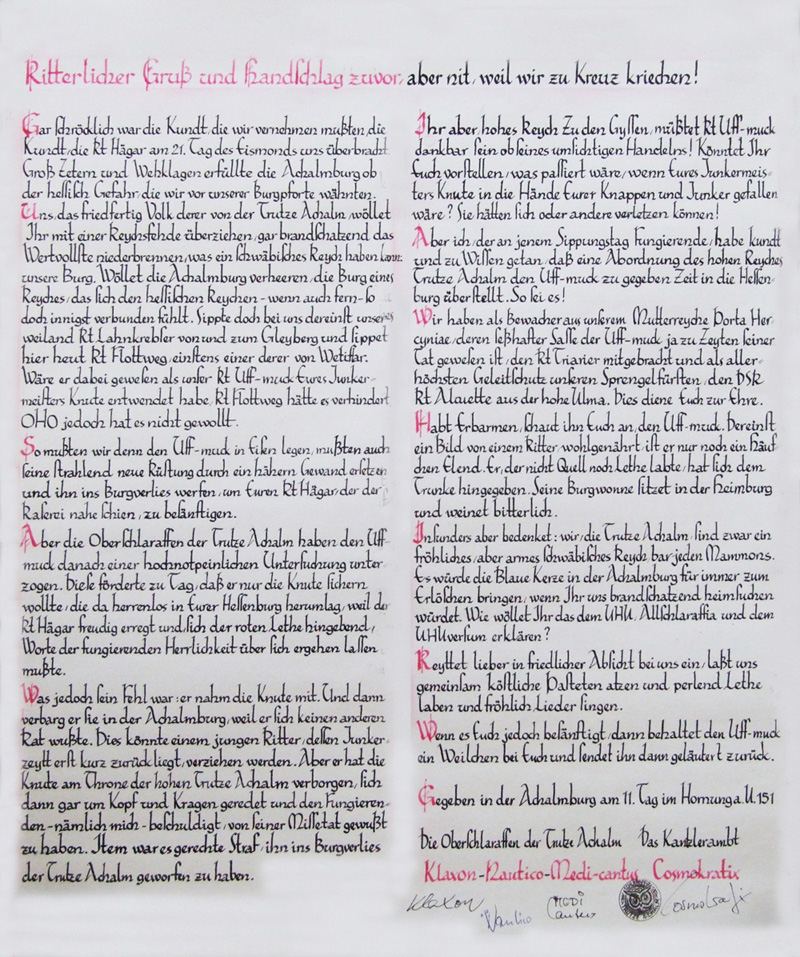 Ritterlicher Gruß und Handschlag zuvor, aber nit, weil wir zu Kreuz kriechen!
Gar schröcklich war die Kundt, die wir vernehmen mußten, die
Kundt, die Rt Hägar am 21. Tag des Eismonds uns überbracht
Groß Zetern und Wehklagen erfüllte die Achalmburg ob
der hessisch Gefahr, die wir vor unserer Burgpforte wähnten.
Uns, das friedfertig Volk derer von der Trutze Achalm, wöllet
Ihr mit einer Reychsfehde überziehen, gar brandschatzend das
Wertvollste niederbrennen, was ein schwäbisches Reych haben kann:
unsere Burg. Wöllet die Achalmburg verheeren, die Burg eines
Reyches, das sich den hessischen Reychen - wenn auch fern - so
doch innigst verbunden fühlt. Sippte doch bei uns dereinst unseres
weiland Rt Lahnkrebser von und zum Gleyberg und sippet
hier heut Rt Flottweg, einstens einer derer von Wetiflar.
Wäre er dabei gewesen als unser Rt Uff-muck Eures Junker-
meisters Knute entwendet habe, Rt Flottweg hätte es verhindert
OHO jedoch hat es nicht gewollt.
So mußten wir denn den Uff-muck in Eisen legen, mußten auch
seine strahlend neue Rüstung durch ein hähern Gewand ersetzen
und ihn ins Burgverlies werfen, um Euren Rt Hägar, der der
Raserei nahe schien, zu besänftigen.
Aber die Oberschlaraffen der Trutze Achalm haben den Uff-
muck danach einer hochnotpeinlichen Untersuchung unter-
zogen. Diese förderte zu Tag, daß er nur die Knute sichern
wollte, die da herrenlos in Eurer Hessenburg herumlag, weil der
Rt Hägar freudig erregt und sich der roten Lethe hingebend,
Worte der fungierenden Herrlichkeit über sich ergehen lassen
mußte.
Was jedoch sein Fehl war: er nahm die Knute mit. Und dann
verbarg er sie in der Achalmburg, weil er sich keinen anderen
Rat wußte. Dies könnte einem jungen Ritter, dessen Junker-
zeytt erst kurz zurück liegt, verziehen werden. Aber er hat die
Knute am Throne der hohen Trutze Achalm verborgen, sich
dann gar um Kopf und Kragen geredet und den Fungieren-
den - nämlich mich - beschuldigt, von seiner Missetat gewußt
zu haben. Item war es gerechte Straf, ihn ins Burgverlies
der Trutze Achalm geworfen zu haben.
Ihr aber, hohes Reych Zu den Gyssen, müßtet Rt Uff-muck
dankbar sein ob seines umsichtigen Handelns! Könntet Ihr
Euch vorstellen, was passiert wäre, wenn Eures Junkermeis-
ters Knute in die Hände Eurer Knappen und Junker gefallen
wäre? Sie hätten sich oder andere verletzen können!
Aber ich, der an jenem Sippungstag Fungierende, habe kundt
und zu Wissen getan, daß eine Abordnung des hohen Reyches
Trutze Achalm den Uff-muck zu gegeben Zeit in die Hessen-
burg überstellt. So sei es!
Wir haben als Bewacher aus unserem Mutterreyche Porta Her-
cyniae, deren seßhafter Sasse der Uff-muck ja zu Zeyten seiner
Tat gewesen ist, den Rt Triarier mitgebracht und als aller-
höchsten Geleitschutz unseren Sprengelfürsten, den DSR
Rt Alouette aus der hohe Ulma. Dies diene Euch zur Ehre.
Habt Erbarmen, schaut ihn Euch an, den Uff-muck. Dereinst
ein Bild von einem Ritter, wohlgenährt, ist er nur noch ein Häuf-
chen Elend. Er, der nicht Quell noch Lethe labte, hat sich dem
Trunke hingegeben. Seine Burgwonne sitzet in der Heimburg
und weinet bitterlich.
Insunders aber bedenket: wir, die Trutze Achalm, sind zwar ein
fröhliches, aber armes schwäbisches Reych bar jeden Mammons.
Es würde die Blaue Kerze in der Achalmburg für immer zum
Erlöschen bringen, wenn Ihr uns brandschatzend heimsuchen
würdet. Wie wöllet Ihr das dem UHU, Allschlaraffia und dem
UHUversum erklären?
Reyttet lieber in friedlicher Absicht bei uns ein, laßt uns
gemeinsam köstliche Pasteten atzen und perlend Lethe
laben und fröhlich Lieder singen.
Wenn es Euch jedoch besänftigt, dann behaltet den Uff-muck
ein Weilchen bei Euch und sendet ihn dann geläutert zurück.
Gegeben in der Achalmburg am 11. Tag im Hornung a.U. 151
Die Oberschlaraffen der Trutze Achalm Das Kantzlerambt
Klaxon-Nautico-Medi-cantus Cosmokratix
Klaxon
Nautico
MEDI
Cantus
Cosmokratix